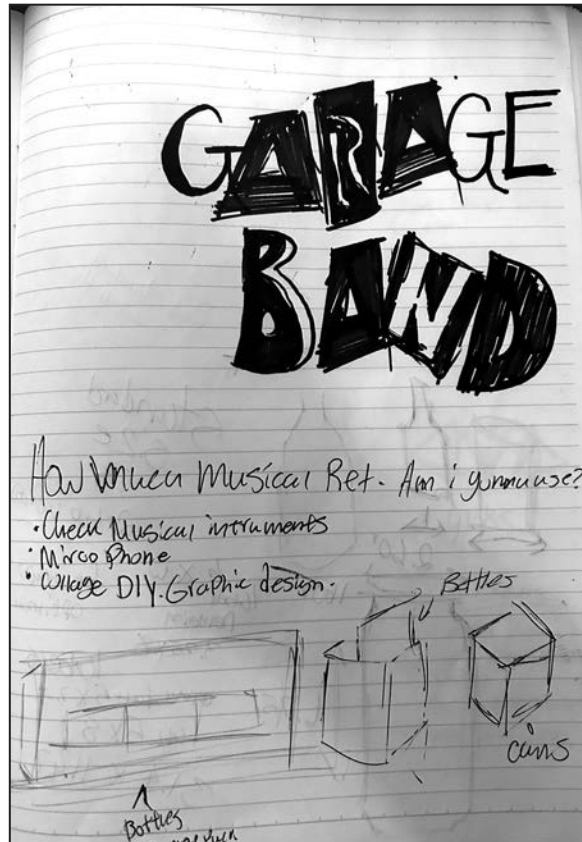 GARAGE
BAND
How Musical Ref. Am i gunna use?
• Check Musical intruments
• Mirco Phone
• Collage DIY. Graphic design.
Bottles
cans
Bottles